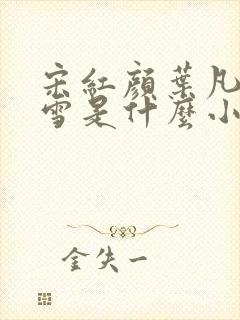 宋紅顏葉凡
雪是什麼小
金失一